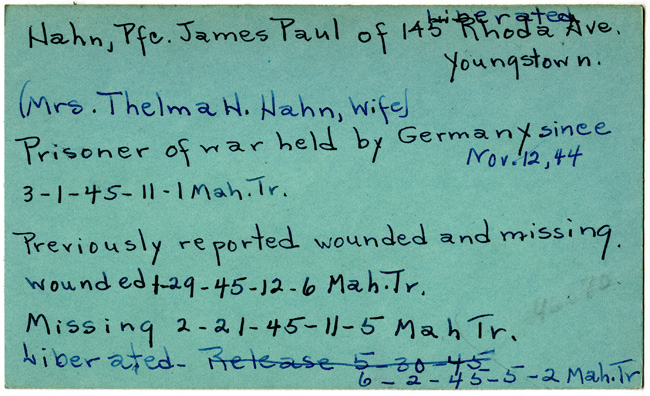 Liberated
Hahn, Pfc. James Paul of 145 Rhoda Ave.
Youngstown.
(Mrs. Thelma H. Hahn, Wife)
Prisoner of war held by Germany since
Nov. 12, 44
3-1-45-11-1 Mah. Tr.
Previously reported wounded and missing.
Wounded 1-29-45-12-6 Mah. Tr.
Missing 2-21-45-11-5 Mah Tr.
Liberated- Release 5-30-45
6-2-45-5-2 Mah. Tr